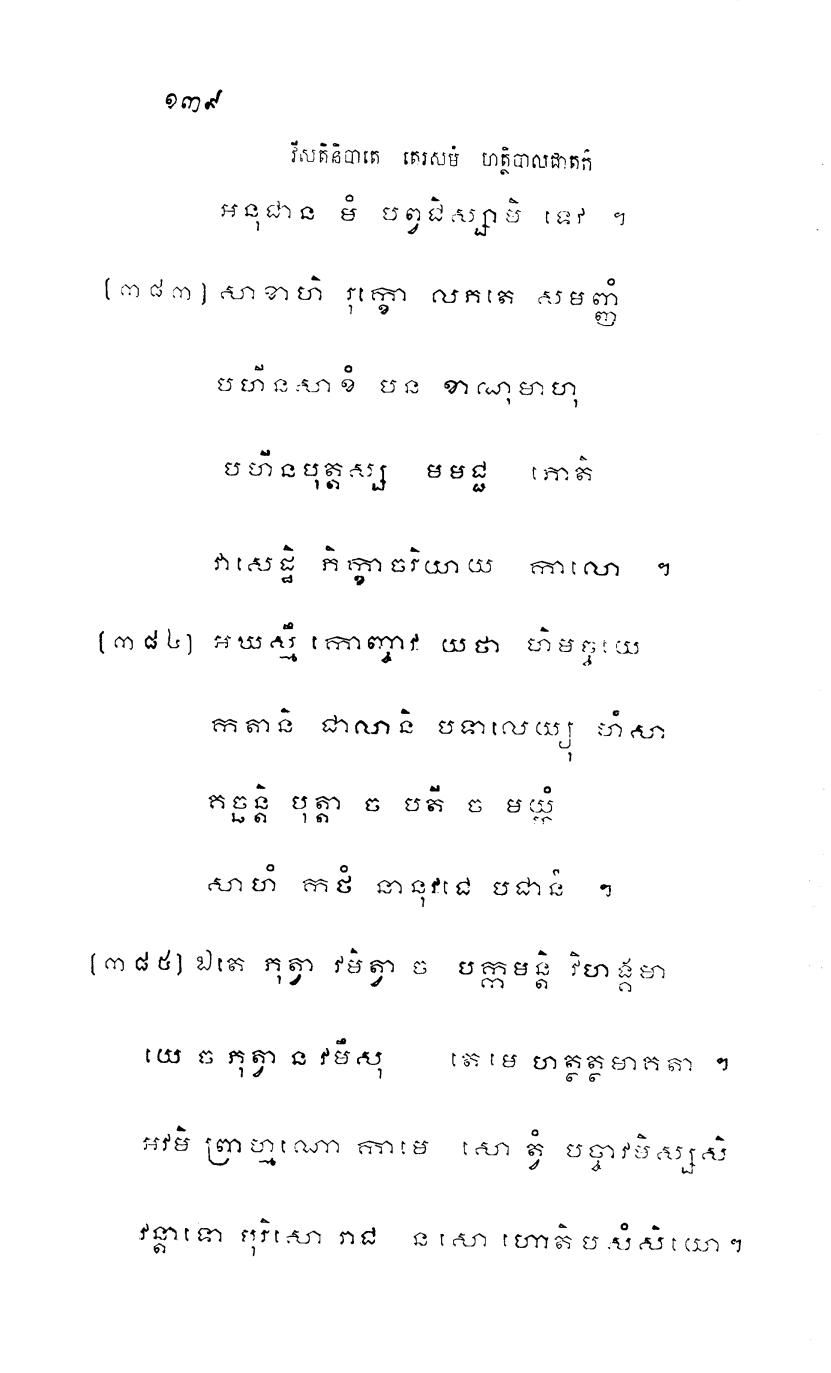 ១៣៩
វីសតិនិបាតេ តេរសមំ ហត្ថិបាលជាតកំ
អនុជាន មំ បព្វជិស្សាមិ ទេវ ។
(៣៨៣) សាខាហិ រុក្ខោ លភតេ សមញ្ញំ
បហីនសាខំ បន ខាណុមាហុ
បហីនបុត្តស្ស មមជ្ជ ភោតិ
វាសេដ្ឋិ ភិក្ខាចរិយាយ កាលោ ។
(៣៨៤) អឃស្មឹ កោញ្ចាវ យថា ហិមច្ចយេ
កតានិ ជាលានិ បទាលេយ្យុ ហំសា
គច្ឆន្តិ បុត្តា ច បតី ច មយ្ហំ
សាហំ កថំ នានុវជេ បជានំ ។
(៣៨៥) ឯតេ ភុត្វា វមិត្វា ច បក្កមន្តិ វិហង្គមា
យេ ច ភុត្វា ន វមឹសុ តេ មេ ហត្ថត្ថមាគតា ។
អវមិ ព្រាហ្មណោ កាមេ សោ ត្វំ បច្ចាវមិស្សសិ
វន្តាទោ បុរិសោ រាជ ន សោ ហោតិ បសំសិយោ ។